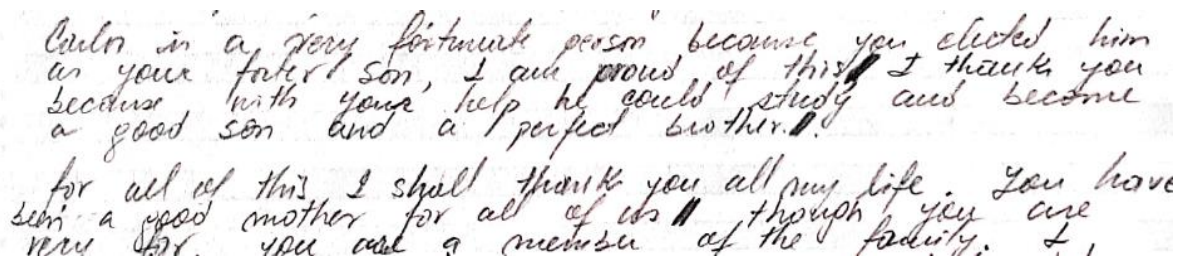 Carlos is a very fortunate person because you elected him
as your foster son, I am proud of this, I thank you
because, with your help he could study and become
a good son and a perfect brother.
for all of this I shall thank you all my life. You have
been a good mother for all of us though you are
very far, you are a member of the family. I,